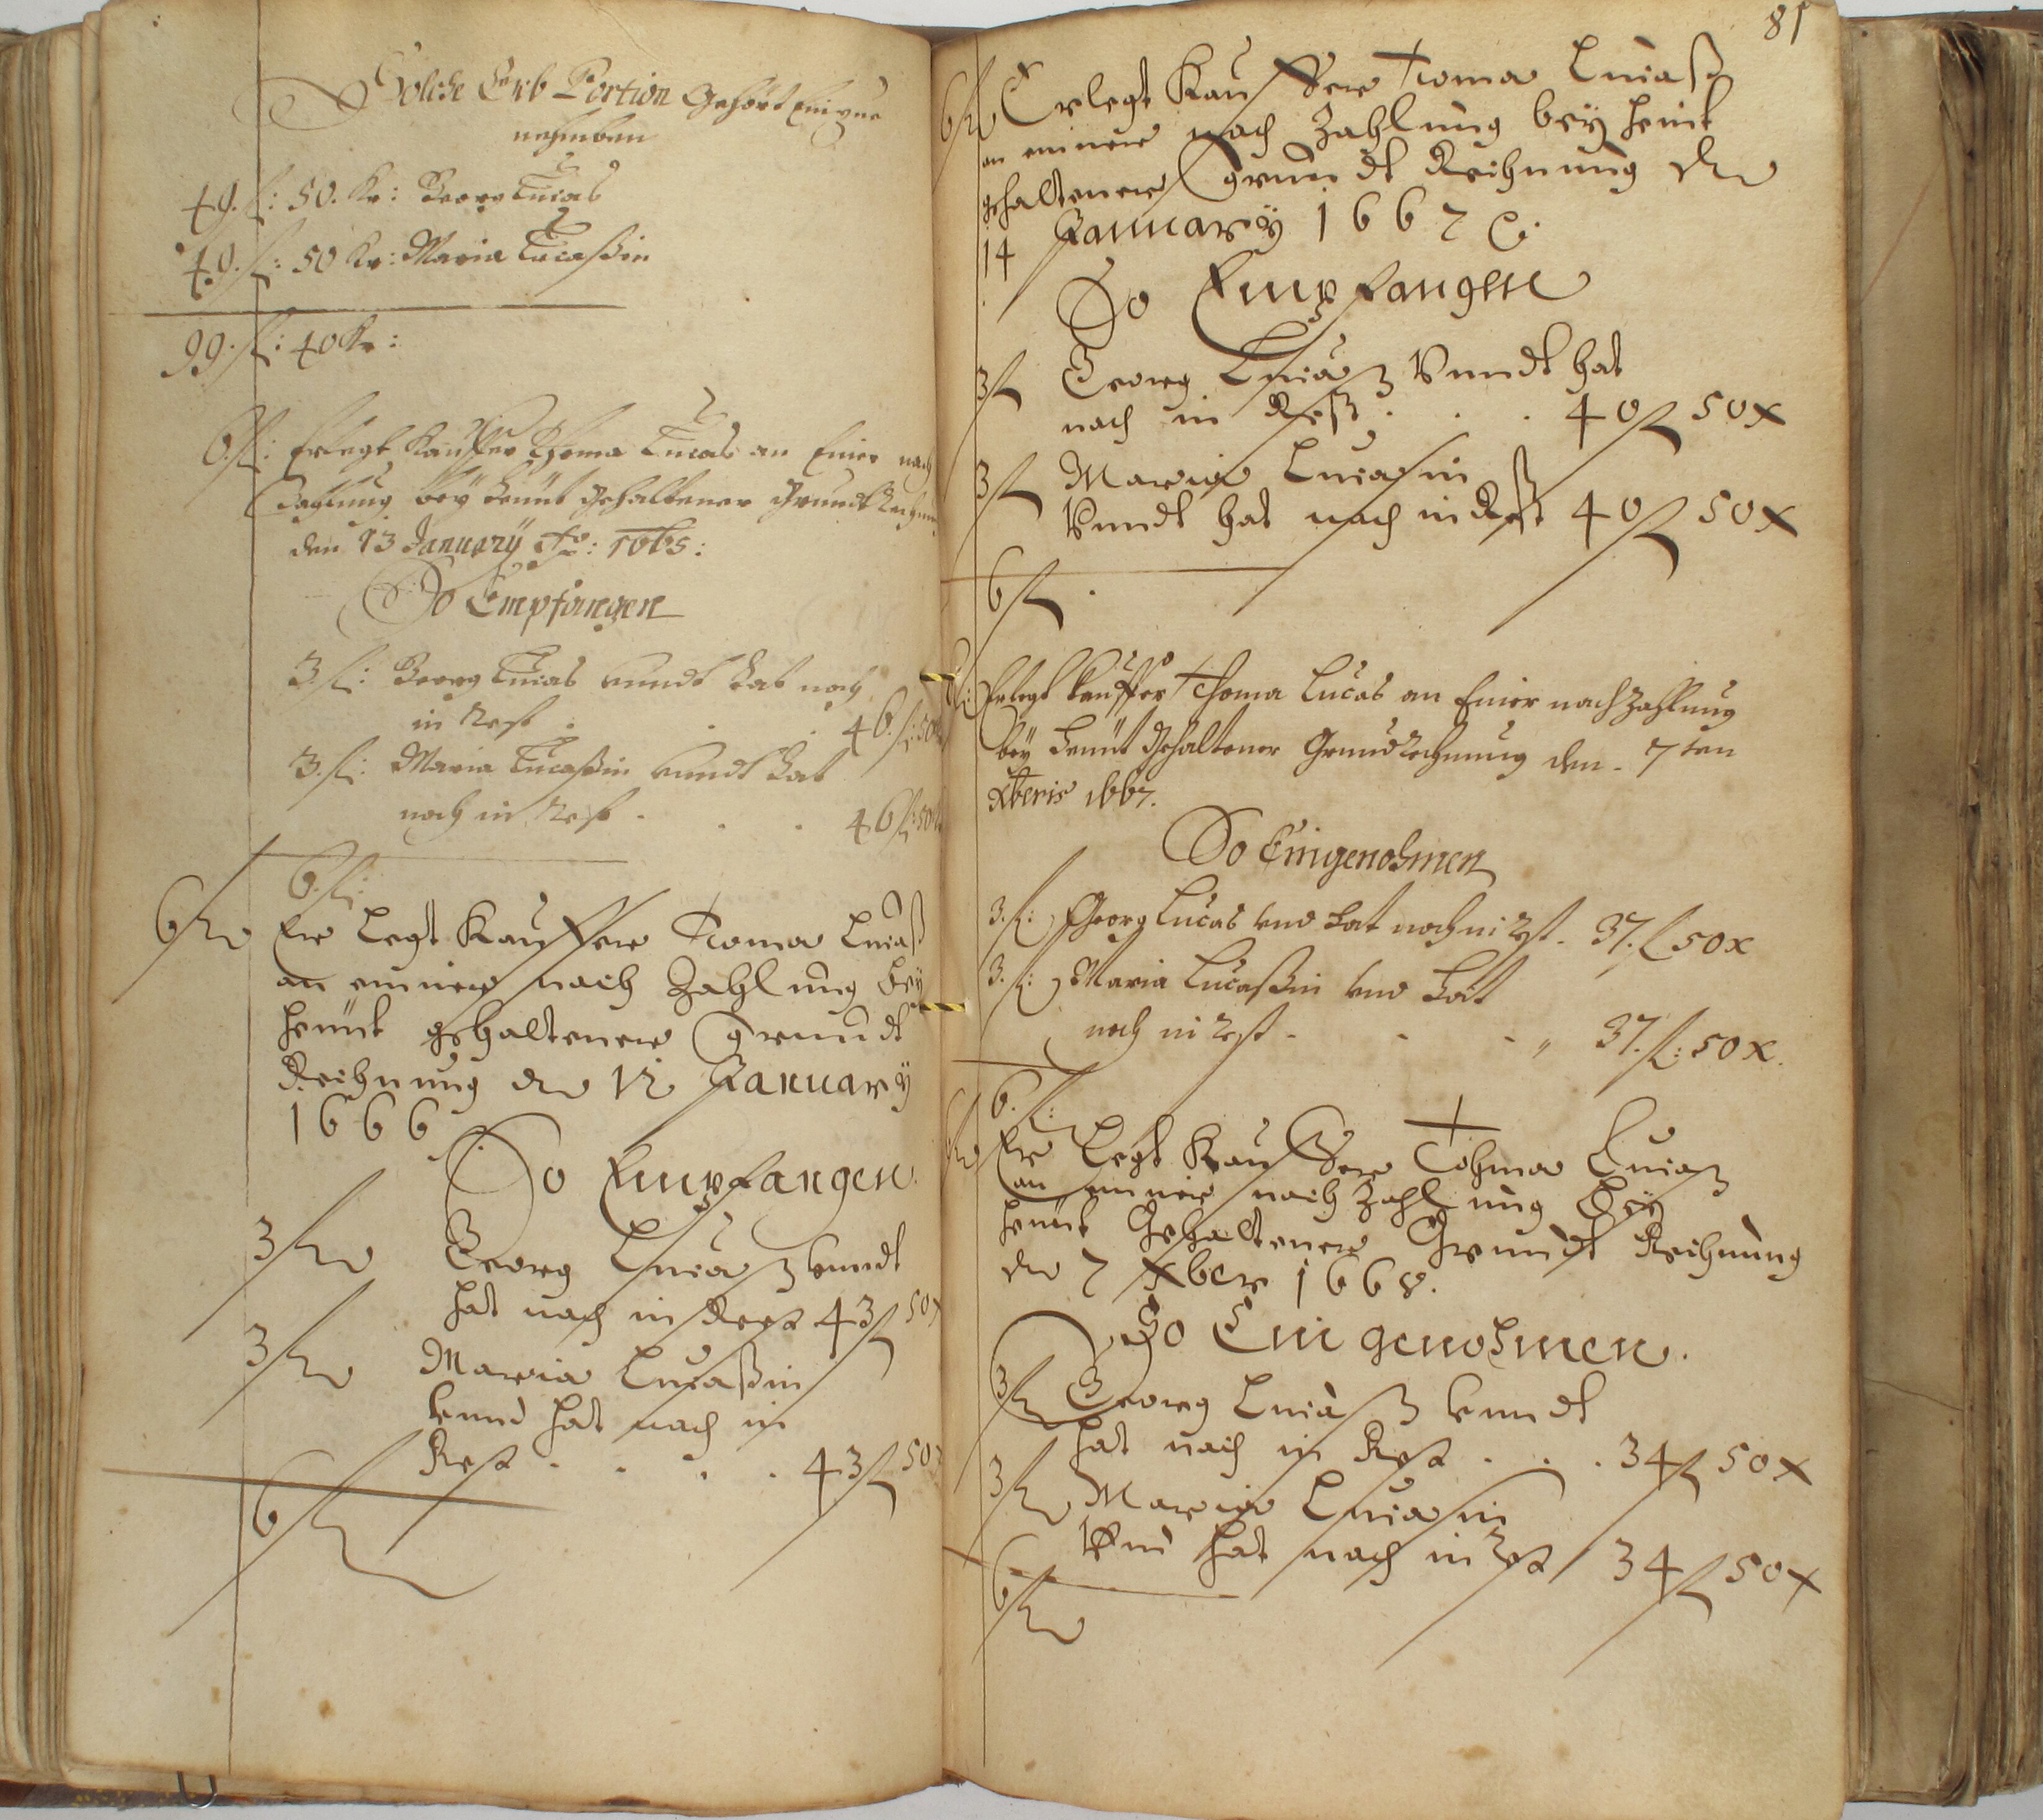 Solche Erb Portion Gehört Einzue
nehmben
49. fl: 50. Kr: Georg Lucas
49. fl: 50 Kr: Maria Lucaßin
99. fl: 40 Kr:
6. fl: Erlegt Kauffer Thoma Lucas an Einer nach
Zahlung bey heünt gehaltener Grundt Rechnung
den 13 January Ao: 1665:
So Empfangen
3. fl: Georg Lucas vnndt hat noch
in Rest . . . 46. fl: 50
3. fl: Maria Lucaßin vnndt hat
noch in Rest . . . 46 fl: 50
6. fl:
6 fl Er Legt Kauffer Toma Lucaß
an einner nach Zahlung bey
heünt gehaltener Grundt
Rechnung den 12 January
1666
So Empfangen
3 fl Georg Lucaß vnndt
hat nach in Rest 43 fl 50 x
3 fl Maria Lucaßin
vnnd hat nach in
Rest . . . . 43 fl 50
6 fl
81
6 fl Erlegt Kauffer Toma Lucaß
an einner nach Zahlung bey heint
gehaltener Grundt Rechnung den
14 January 1667
So Empfangen
3 fl Georg Lucaß Vnndt hat
nach in Rest . . . 40 fl 50 x
3 fl Maria Lucasin
Vnndt hat nach in Rest 40 fl 50 x
6 fl .
6 fl: Erlegt Kauffer Thoma Lucas an Einer nachzahlung
bey heünt Gehaltener Grundrechnung den 7ten
Xberis 1667.
So Eingenohmen
3. fl: Georg Lucas vnd hat noch in rest . 37. fl 50 x
3. fl: Maria Lucaßin vnd hat
noch in rest - - - " 37. fl: 50 x.
6. fl:
6 fl Er Legt Kauffer Tohma Lucaß
an einner nach Zahlung bey
heünt Gehaltener Grundt Rechnung
den 7 Xber 1668.
So Ein genohmen.
3 fl Georg Lucaß vnndt
hat nach in Rest . . . 34 fl 50 x
3 fl Maria Lucasin
Vnd hat nach in rest 34 fl 50 x
6 fl